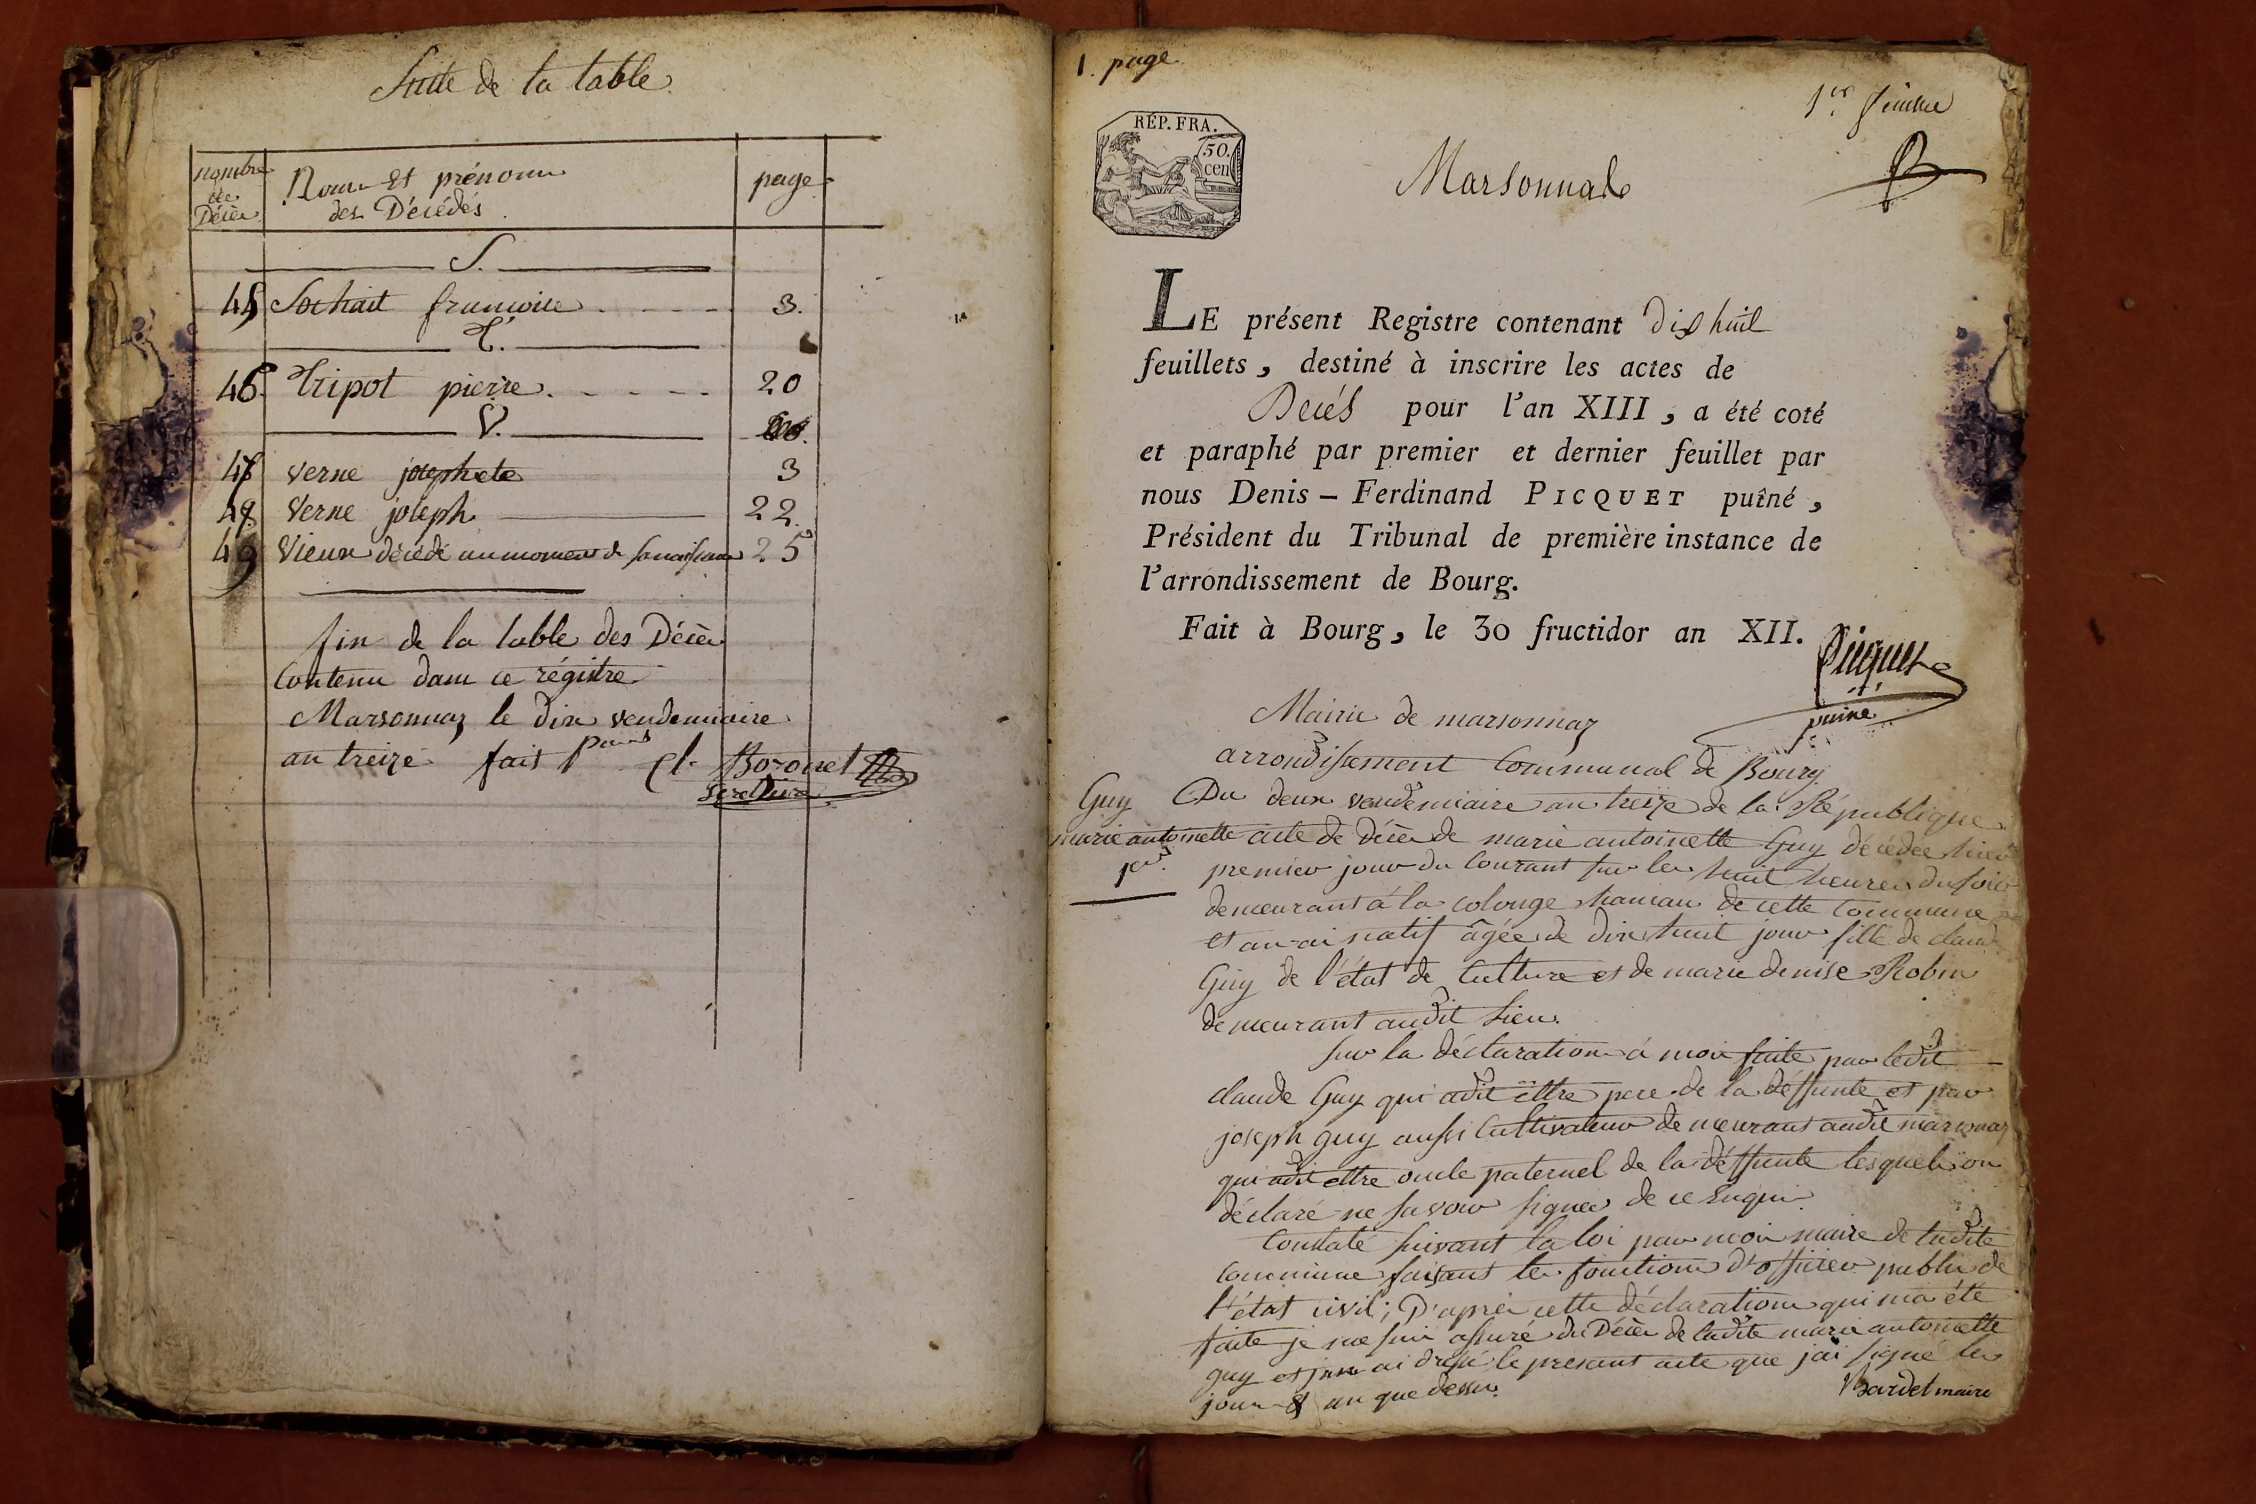 Suite de la table
nombre de Décès
Noms Et prénoms des Décédés
page
S.
45 Sochait francoise 3.
T.
46. Tripot pierre 20
V.
47 Verne josephete 3
48 Verne joseph 22
49 Vieux décédé au moment de sa naissance 25
fin de la table des Décès
Contenu dans ce régistre
Marsonnaz le dix vendemiaire
an treize fait p Cl. Borouet
Secretaire
1. page
1er feuillet
RÉP. FRA.
50. cen
Marsonnas
LE présent Registre contenant dix huit
feuillets, destiné à inscrire les actes de
Décés pour l'an XIII, a été coté
et paraphé par premier et dernier feuillet par
nous Denis – Ferdinand PICQUET puîné,
Président du Tribunal de première instance de
l'arrondissement de Bourg.
Fait à Bourg, le 30 fructidor an XII.
Picquet
puiné
Mairie de marsonnaz
arrondissement Communal de Bourg
Guy
marie antoinette
1er
Du deux vendémiaire an treize de la République
acte de Décès de marie antoinette Guy décédée hier
premier jour du Courant sur les huit heures du soir
demeurant á la colonge hamau de cette Commune
et natif âgée de dix huit jour fille de claude
Guy de l'état de Culture et de marie denise Robin
demeurant audit Lieu.
Sur la déclaration á moi faite par ledit
claude Guy qui adit ettre pere de la déffunte et par
joseph guy aussi Cultivateur demeurant audit marsonaz
qui adit ettre oncle paternel de la déffunte lesquels on
déclaré ne savoir signer de ce Enquis
Constaté suivant la loi par moi maire de ladite
Commune faisant les fonctions d'officier public de
l'état civil; D'après cette déclaration qui ma été
faite je me suis assuré du Décès de ladite marie antoinette
guy et jen ai dressé le presant acte que jai signé les
jour & an que dessus.
Bardet maire